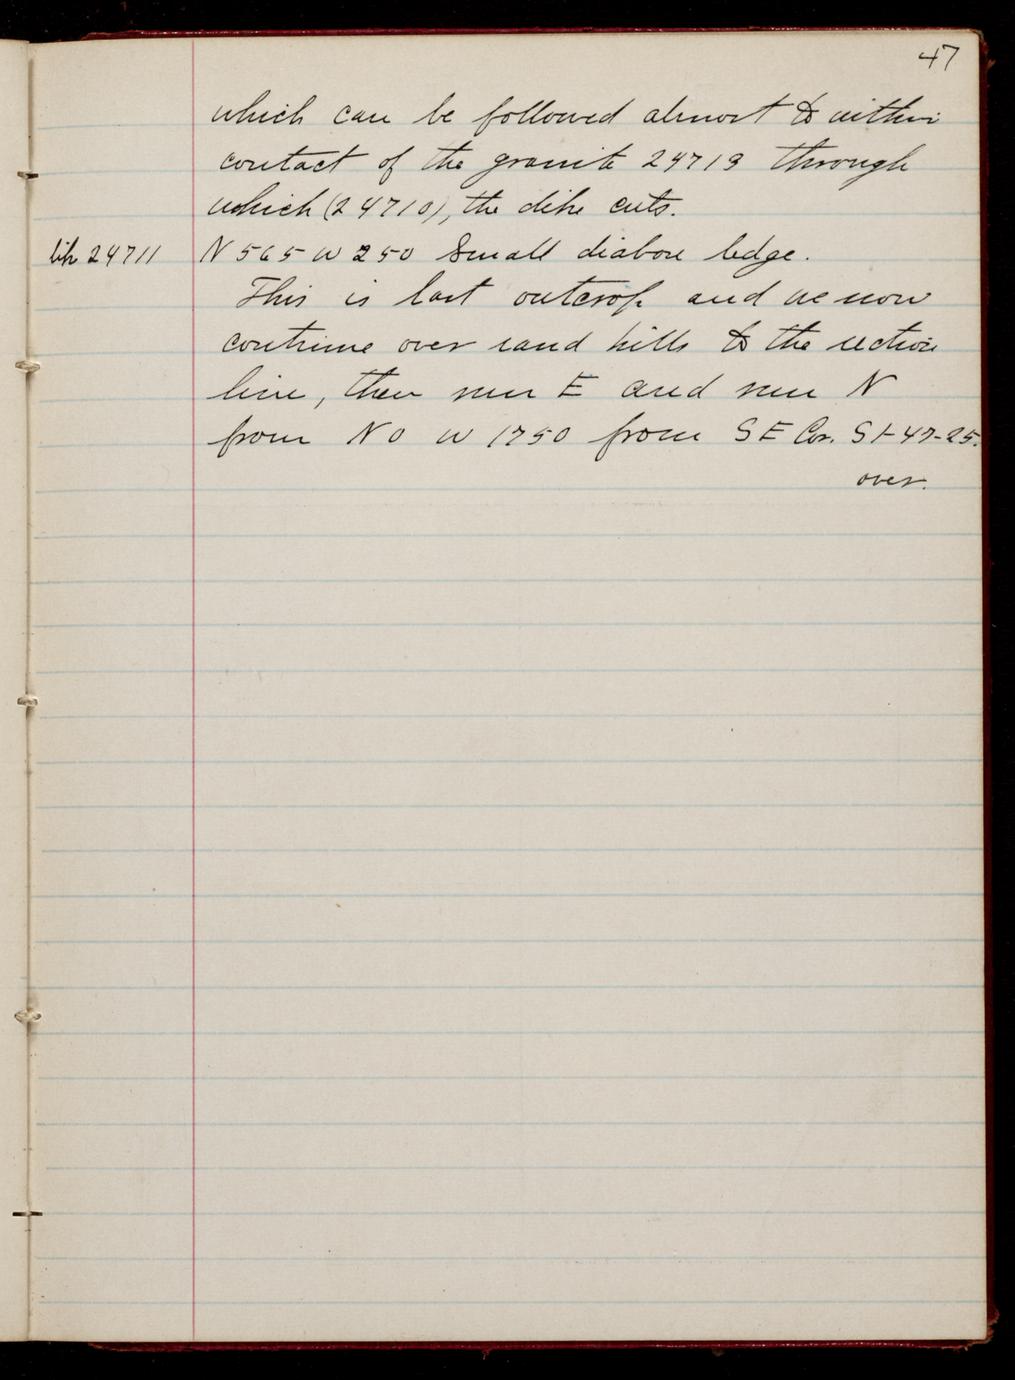 47
which can be followed almost to within
contact of the granite 24719 through
which (24710), the dike cuts.
24711 N 565 W 250 Small diabase ledge.
This is last outcrop and we now
continue over sand hills to the section
line, then run E and run N
from N 0 W 1750 from S E Cor. S 1-47-25.
over.